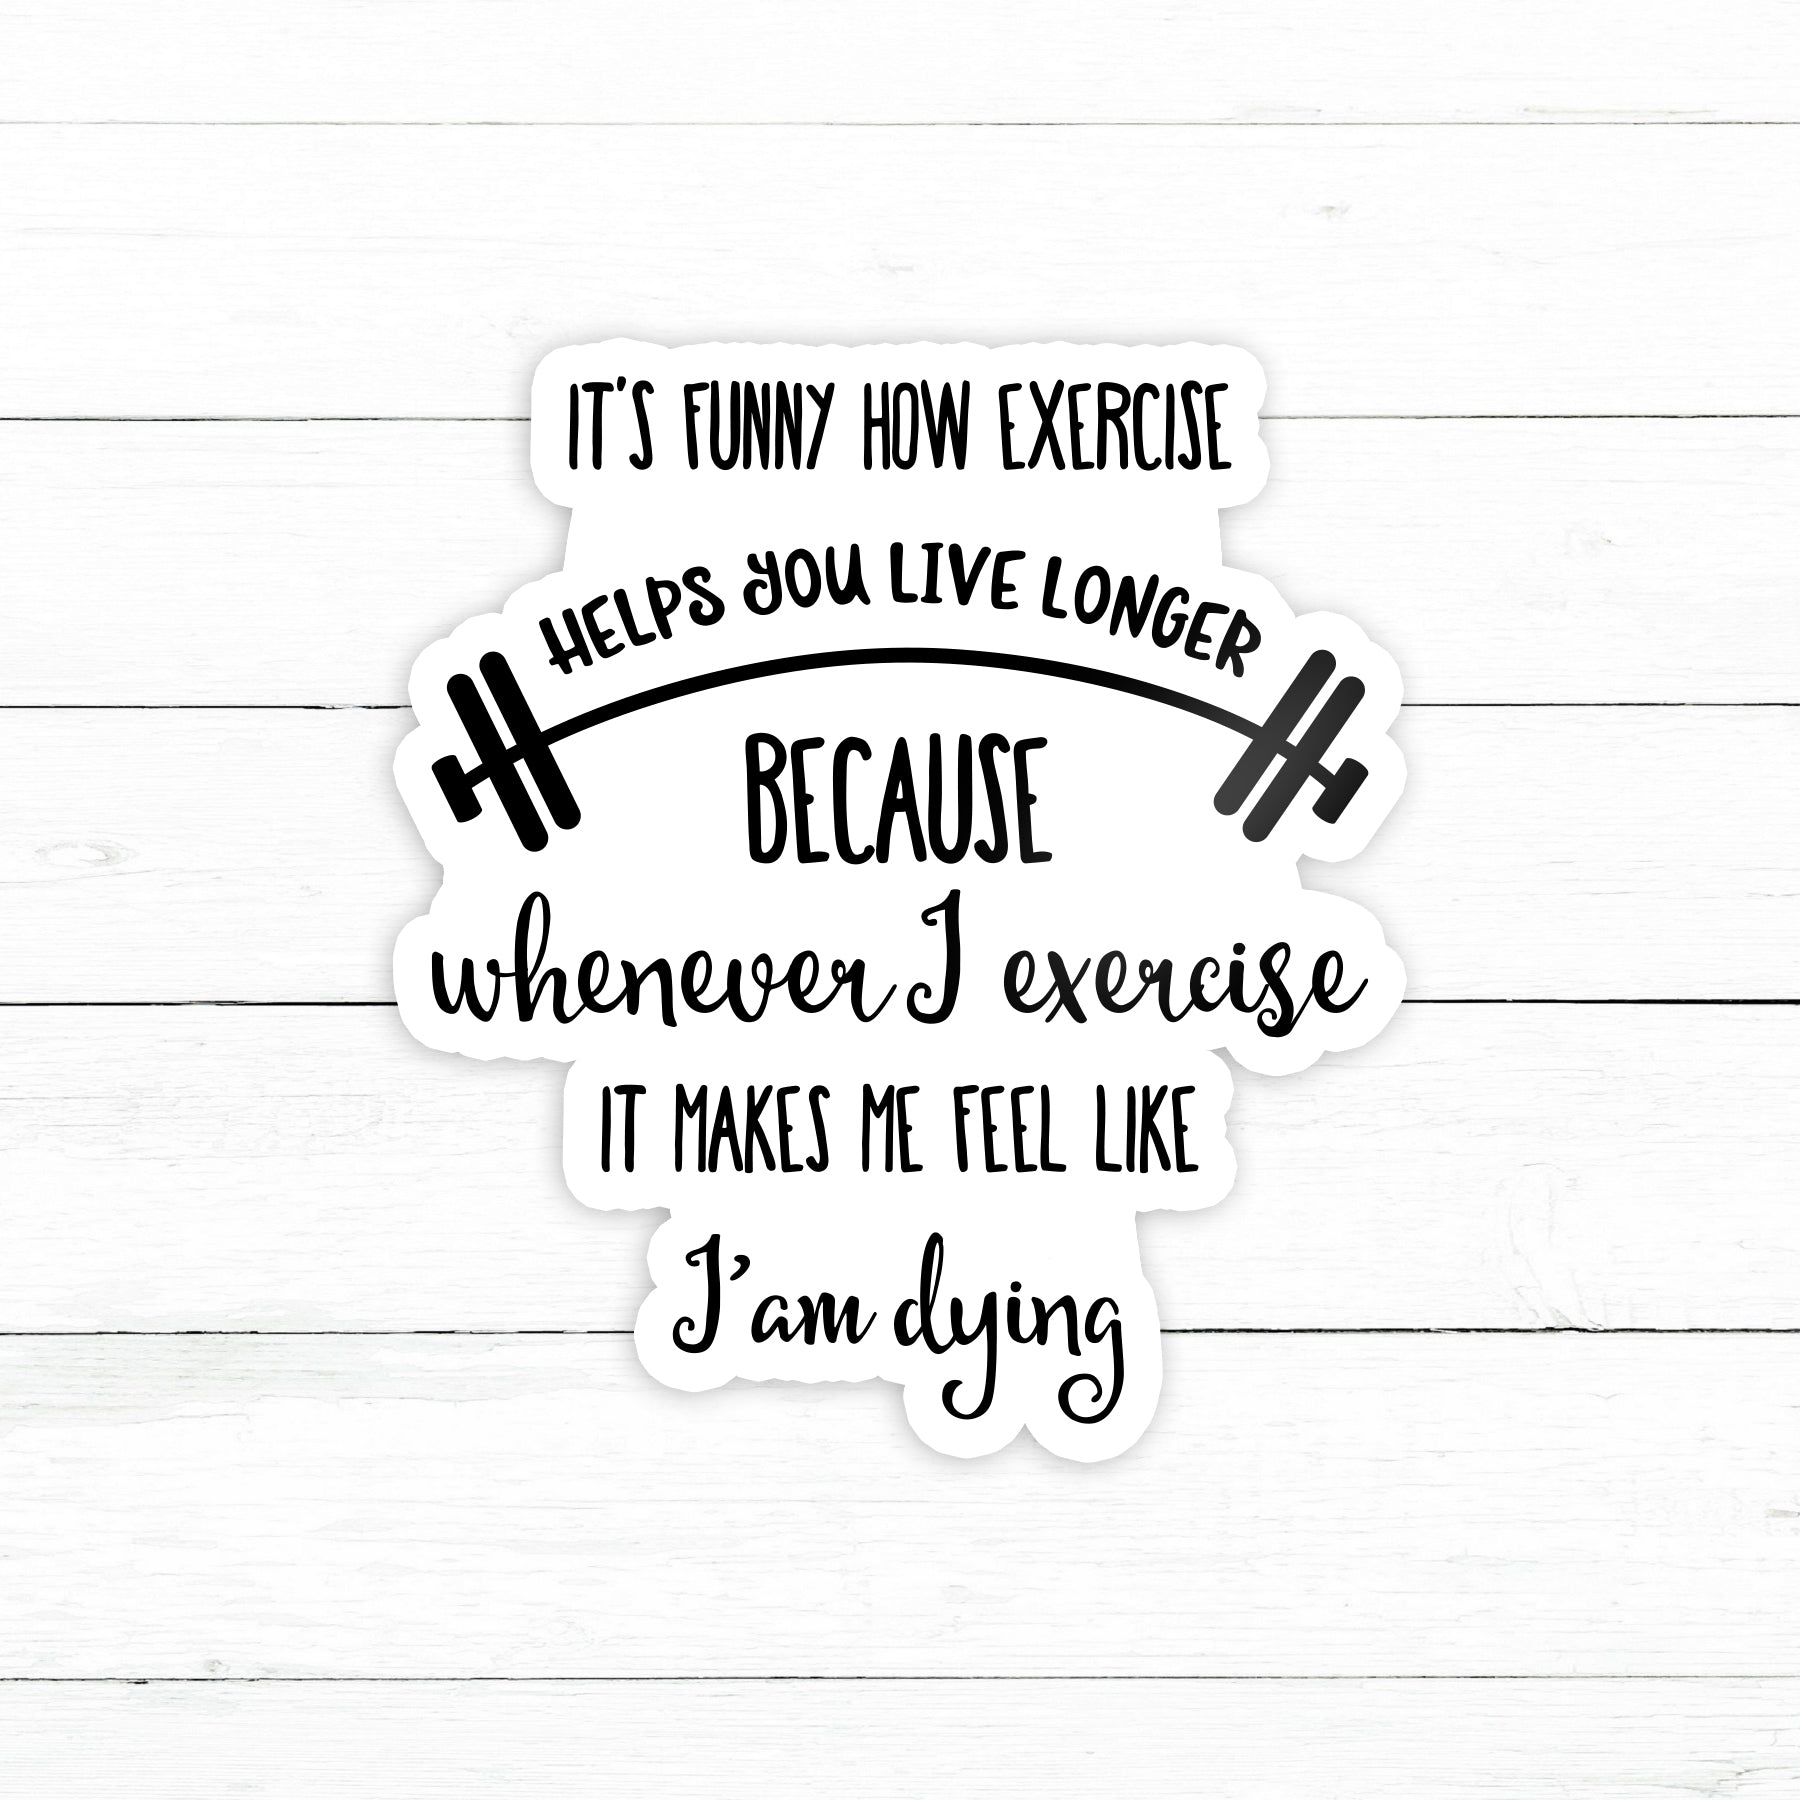 IT'S FUNNY HOW EXERCISE
HELPS YOU LIVE LONGER
BECAUSE
whenever I exercise
IT MAKES ME FEEL LIKE
I'am dying